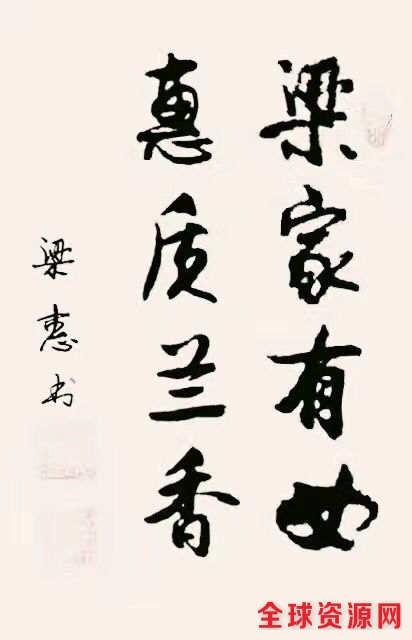 梁家有女
惠质兰香
梁惠书
全球资源网